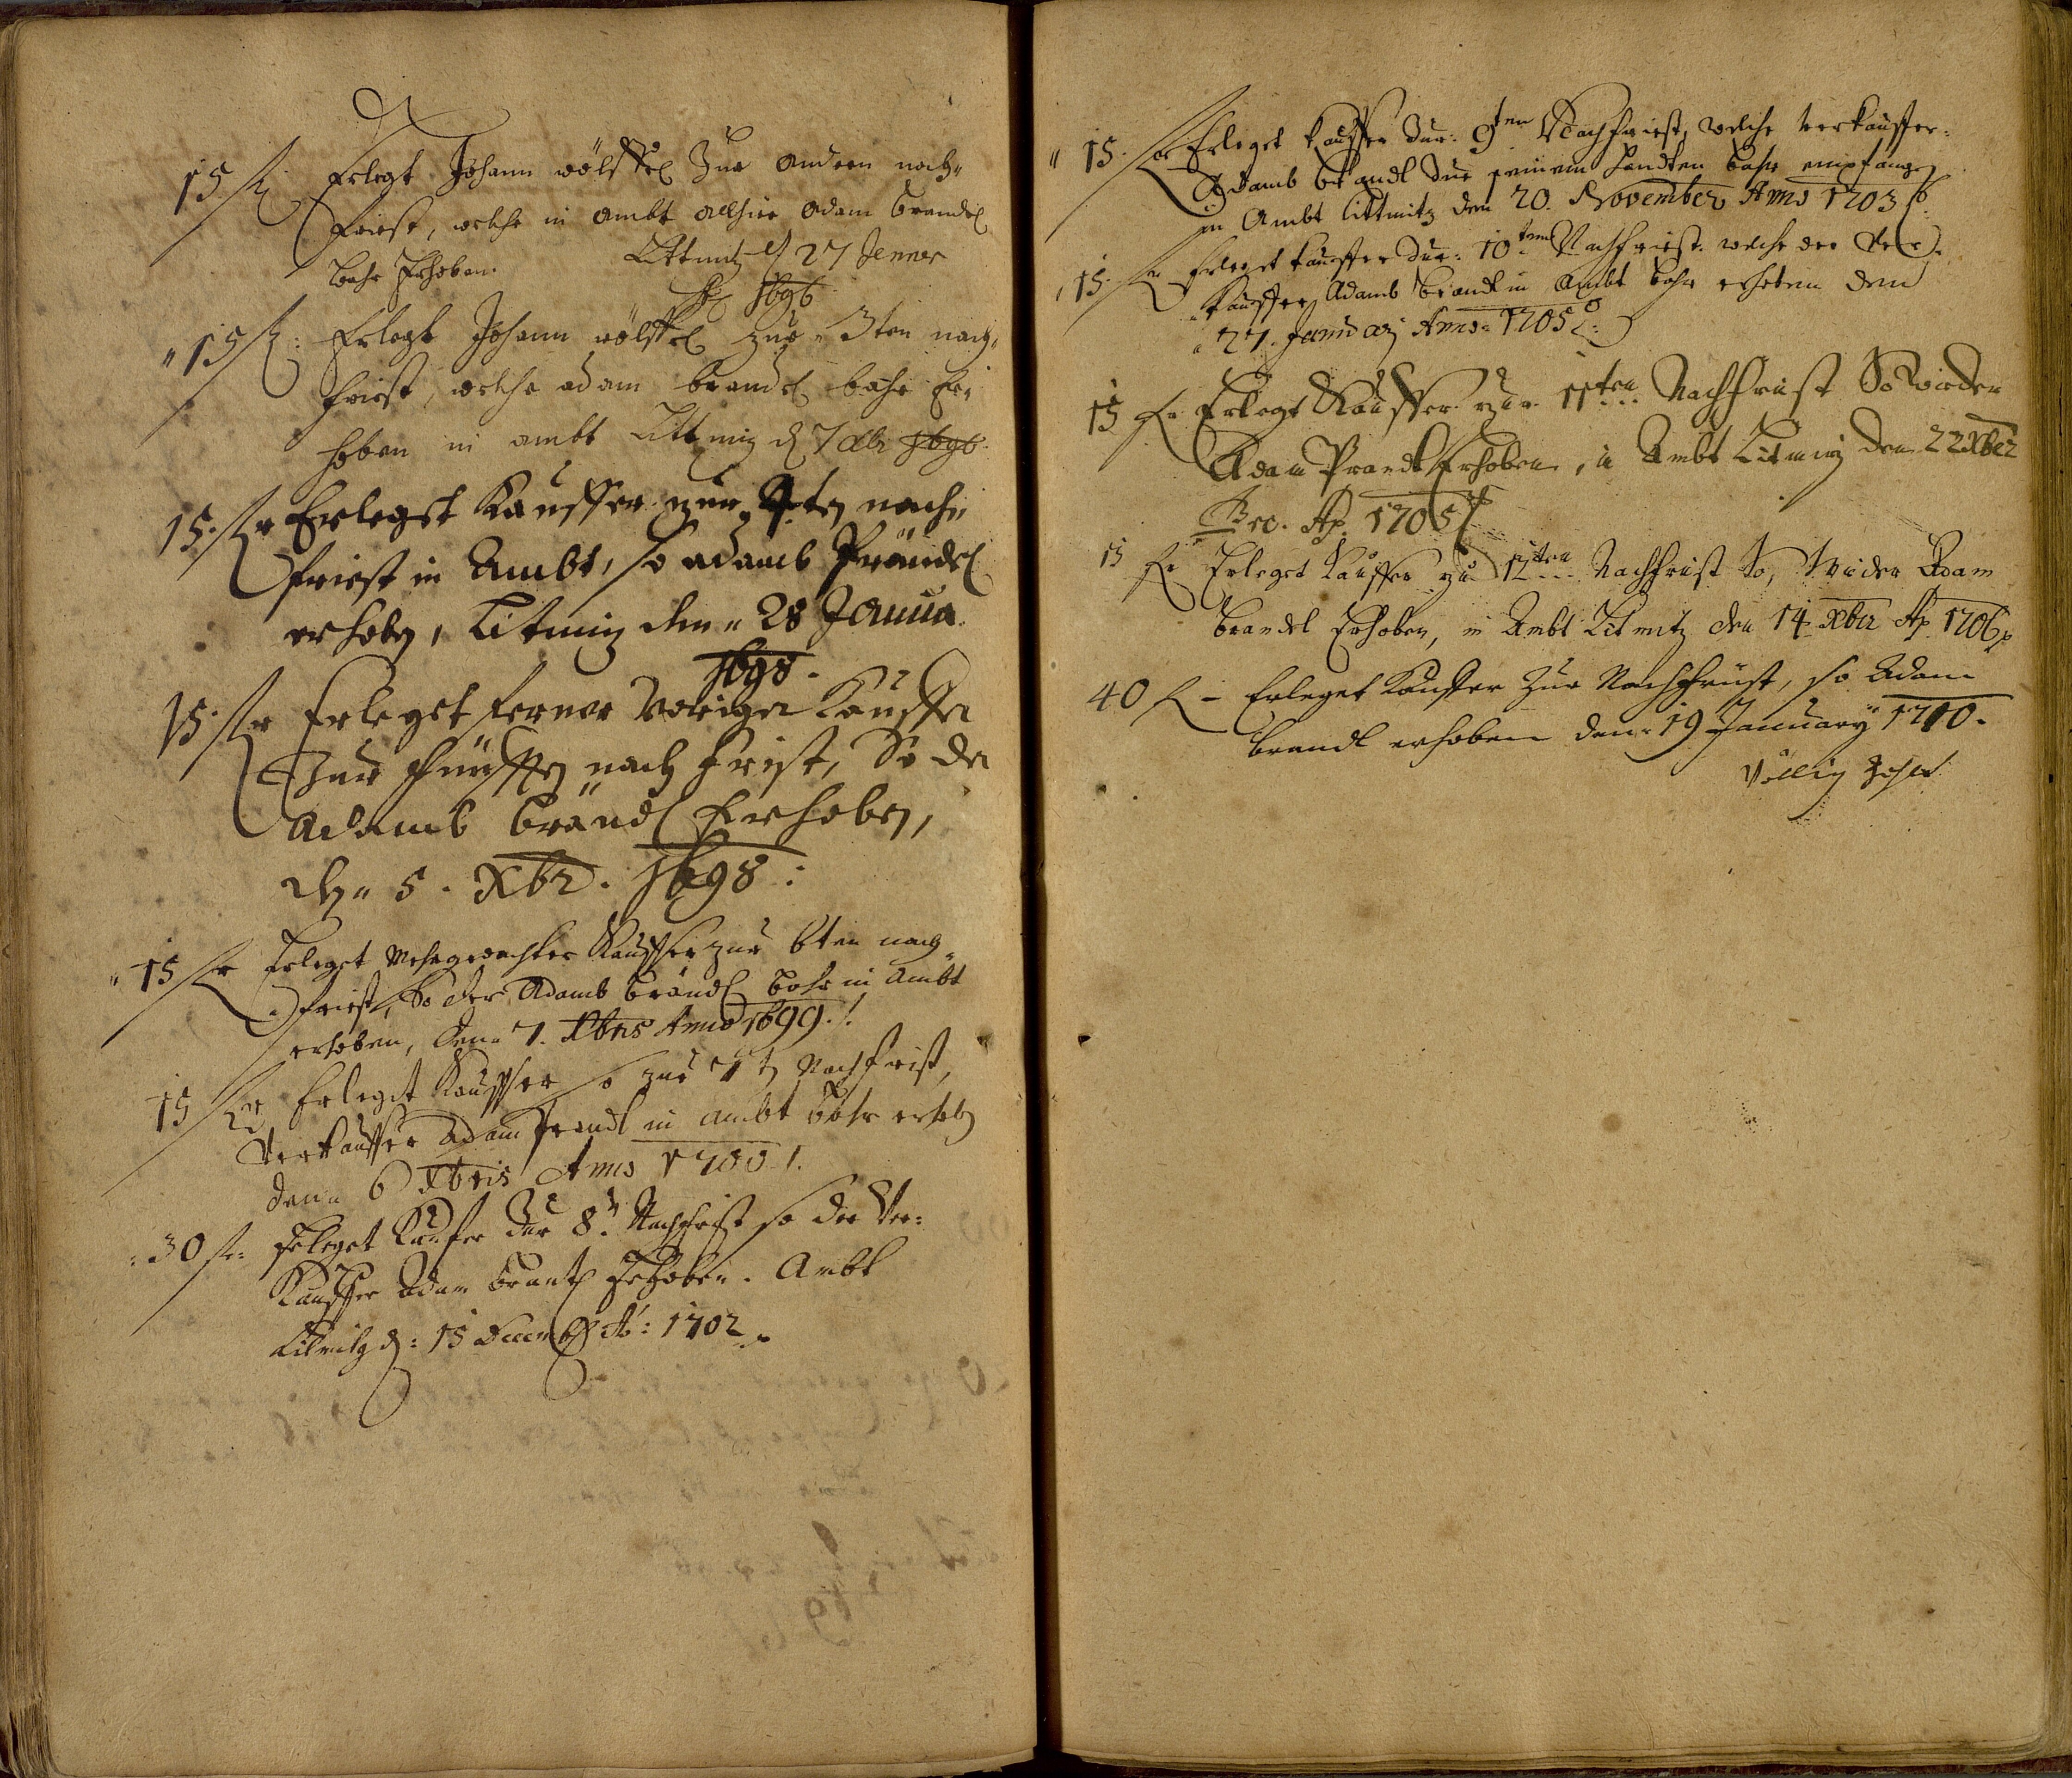 15 fl Erlegt Johann wölffel Zur andern nach-
friest, welche in ambt allhier adam brandl
bahr Erhoben. Littmitz d 27 Jenner
1696
15 fl: Erlegt Johann wölffel zur 3ten nach-
friest, welche adam brandl bahr Er-
hoben in ambt Littmitz d 7 Xbr 1696
15. fl Erlegst Kauffer zur 4ten nach-
friest in Ambt, so adamb Prandl
erhoben, Litmitz den 28 Janua
1698.
15. fl Erleget ferner voriger Kauffer
Zur fünfften nach frist, So der
Adamb brändl Erhoben,
den 5. Xbr. 1698:
15 fl Erleget Mehrgedachter Kauffer zur 6ten nach-
friest, So der Adamb brändl bahr in Ambt
erhoben, den 7. Xbris Anno 1699.
15 fl Erleget Kauffer so zur 7t Nachfrist,
Verkauffer Adam Prandl in ambt bahr erhoben
den 6 Xbris Anno 1700.
30 fl: Erleget Kaufer Zur 8t Nachfrist so der Ver-
Kauffer Adam brantl Erhoben. Ambt
Litmitz d: 15 Decemb Ao: 1702
15. fl Erleget Kauffer Zur: 9ten Nachfriest, welche Verkauffer:
Adamb brandl zue seinem handten bahr empfangen
im Ambt Littmitz den 20. November Anno 1703
15. fl Erleget Kauffer Zur: 10ten Nachfriest. welche der Ver-
Kauffer Adamb brandl in Ambt bahr erhoben den
27. January Anno 1705
15 fl Erlegt Kauffer zur 11ten Nachfrist So wieder
Adam Prandl Erhoben, in Ambt Litmitz den 22 Xber
Ao. 1705
15 fl Erleget Kauffer zu 12ten Nachfrist So, wieder Adam
brandl Erhoben, in Ambt Litmitz den 14 Xber Ao 1706
40 fl - Erleget Kauffer Zur Nachfrist, so Adam
brandl erhoben den 19 January 1710.
Völlig zahlt